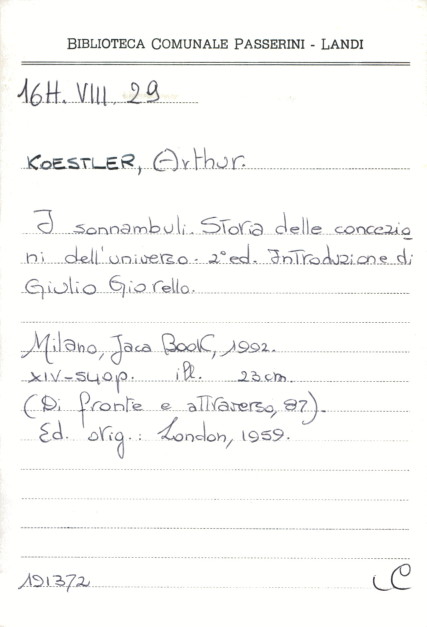 BIBLIOTECA COMUNALE PASSERINI - LANDI
16H. VIII. 29
KOESTLER, Arthur.
I sonnambuli. Storia delle concezio
ni dell'universo. 2ª ed. Introduzione di
Giulio Giorello.
Milano, Jaca Book, 1992.
XIV-540p. ill. 23 cm.
(Di fronte e attraverso, 87).
Ed. orig.: London, 1959.
191372